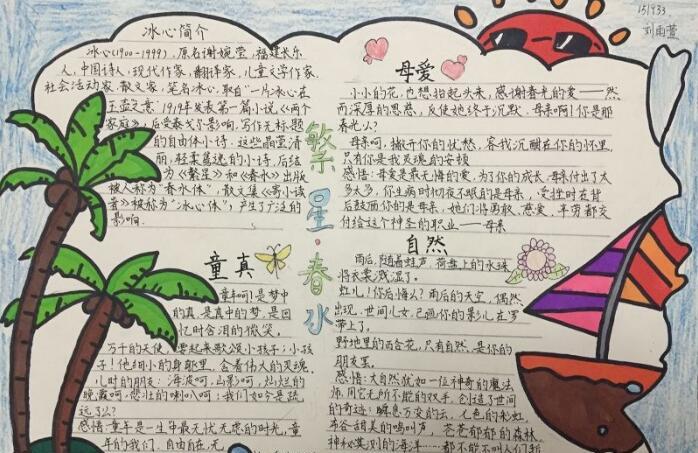 151933
刘雨萱
冰心简介
冰心(1900-1999),原名谢婉莹,福建长乐
人,中国诗人,现代作家,翻译家,儿童文学作家.
社会活动家.散文家,笔名冰心,取自“一片冰心在
玉壶”之意.1919年发表第一篇小说《两个
家庭》,后受泰戈尔影响,写作无标题
的自由体小诗.这些晶莹清
丽,轻柔隽逸的小诗,后结
为《繁星》和《春水》出版
被人称为“春水体”,散文集《寄小读
者》被称为“冰心体”,产生了广泛的
影响.
繁星·春水
母爱
小小的花,也想抬起头来,感谢春光的爱——然
而深厚的恩慈,反使她终于沉默.母亲啊!你是那
春光么?
母亲呵,撇开你的忧愁,容我沉酣在你的怀里.
只有你是我灵魂的安顿
感悟:母爱是最无悔的爱,为了你的成长,母亲付出了太
多太多,你生病时彻夜不眠的是母亲,受挫时在背
后鼓励你的是母亲,她们将勇敢、慈爱、辛劳都交
付给这个神圣的职业——母亲
童真
童年呵!是梦中
的真.是真中的梦.是回
忆时含泪的微笑.
万千的天使,要起来歌颂小孩子;小孩
子!他细小的身躯里,含着伟大的灵魂.
儿时的朋友:海波呵,山影呵,灿烂的
晚霞呵,悲壮的喇叭呵;我们如今是疏
远了么?
感悟:童年是一生中最无忧无虑的时光,童
年的我们.自由自在,无
自然
雨后,随着蛙声,荷盘上的水珠
将衣裳溅湿了.
红儿!你后悔么?雨后的天空,偶然
出现,世间儿女,已画你的影儿在罗
带上了.
野地里的百合花,只有自然.是你的
朋友罢.
感悟:大自然犹如一位神奇的魔法
师.用它无所不能的双手,创造了世间
的奇迹:瞬息万变的云,七色的彩虹,
布谷甜美的鸣叫声,苍苍郁郁的森林.
神秘莫测的海洋……都不能不叫人们折